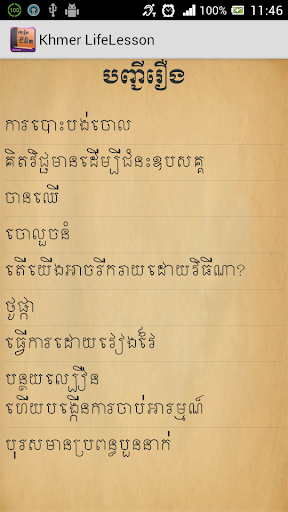 100 11:46
Khmer LifeLesson
បញ្ជីរឿង
ការបោះបង់ចោល
គិតវិជ្ជមានដើម្បីជំនះឧបសគ្គ
ចានឈើ
ចោលួចនំ
តើយើងអាចរីករាយដោយវិធីណា?
ថូផ្កា
ធ្វើការដោយវៀងវៃ
បន្ថយល្បឿន
ហើយបង្កើនការចាប់អារម្មណ៍
បុរសមានប្រពន្ធបួននាក់